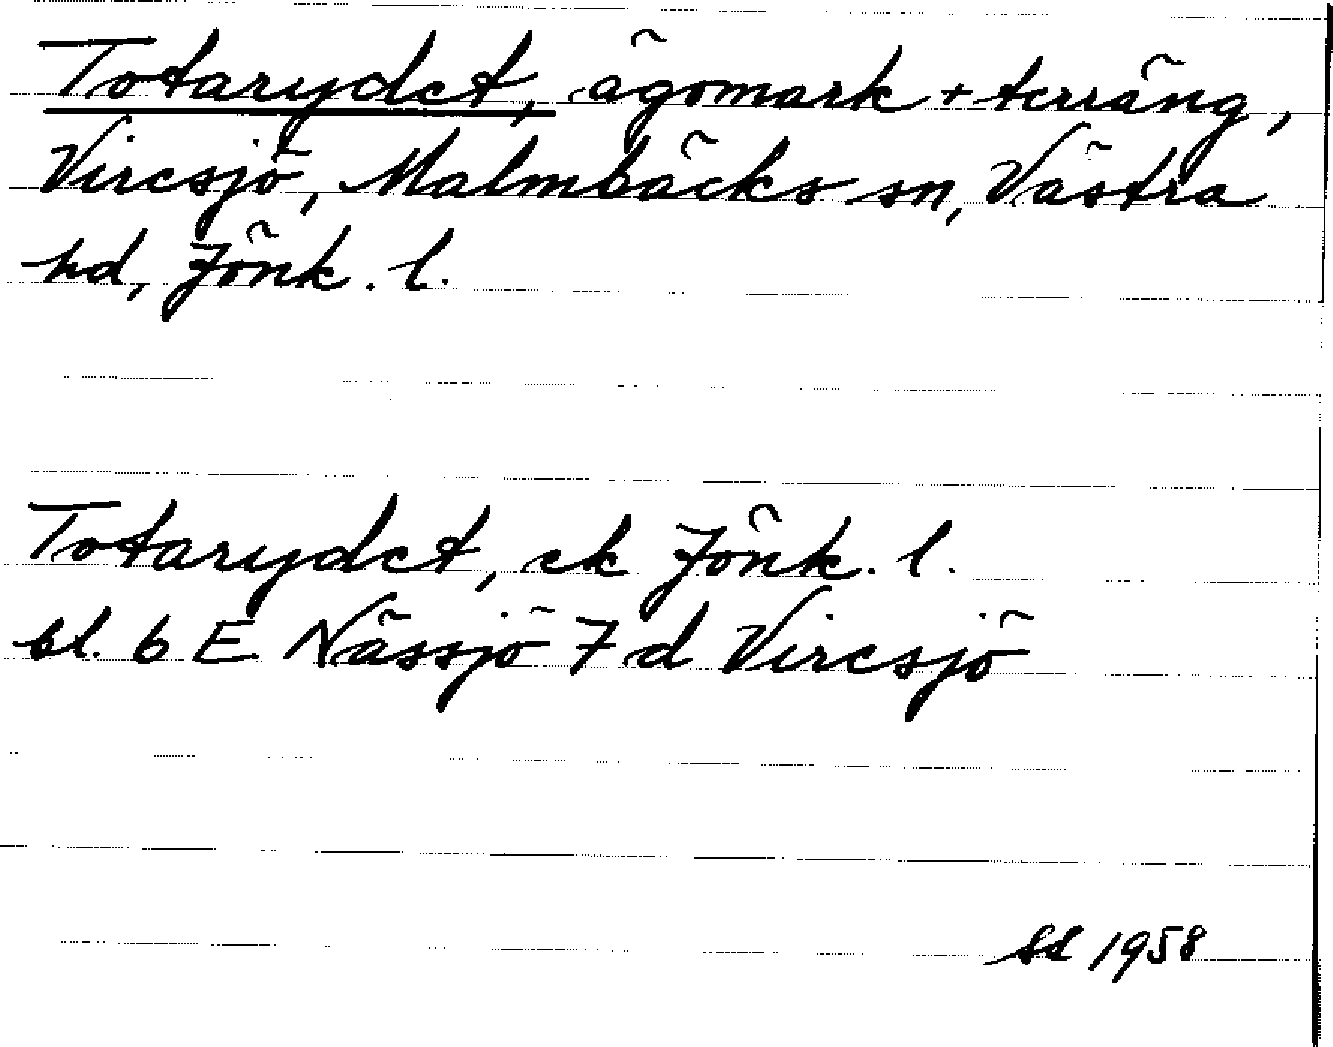 Totarydet, ägomark + terräng,
Viresjö, Malmbäcks sn, Västra
hd, Jönk. l.
Totarydet, ek Jönk. l.
bl. 6 E Nässjö 7 d Viresjö
SL 1958